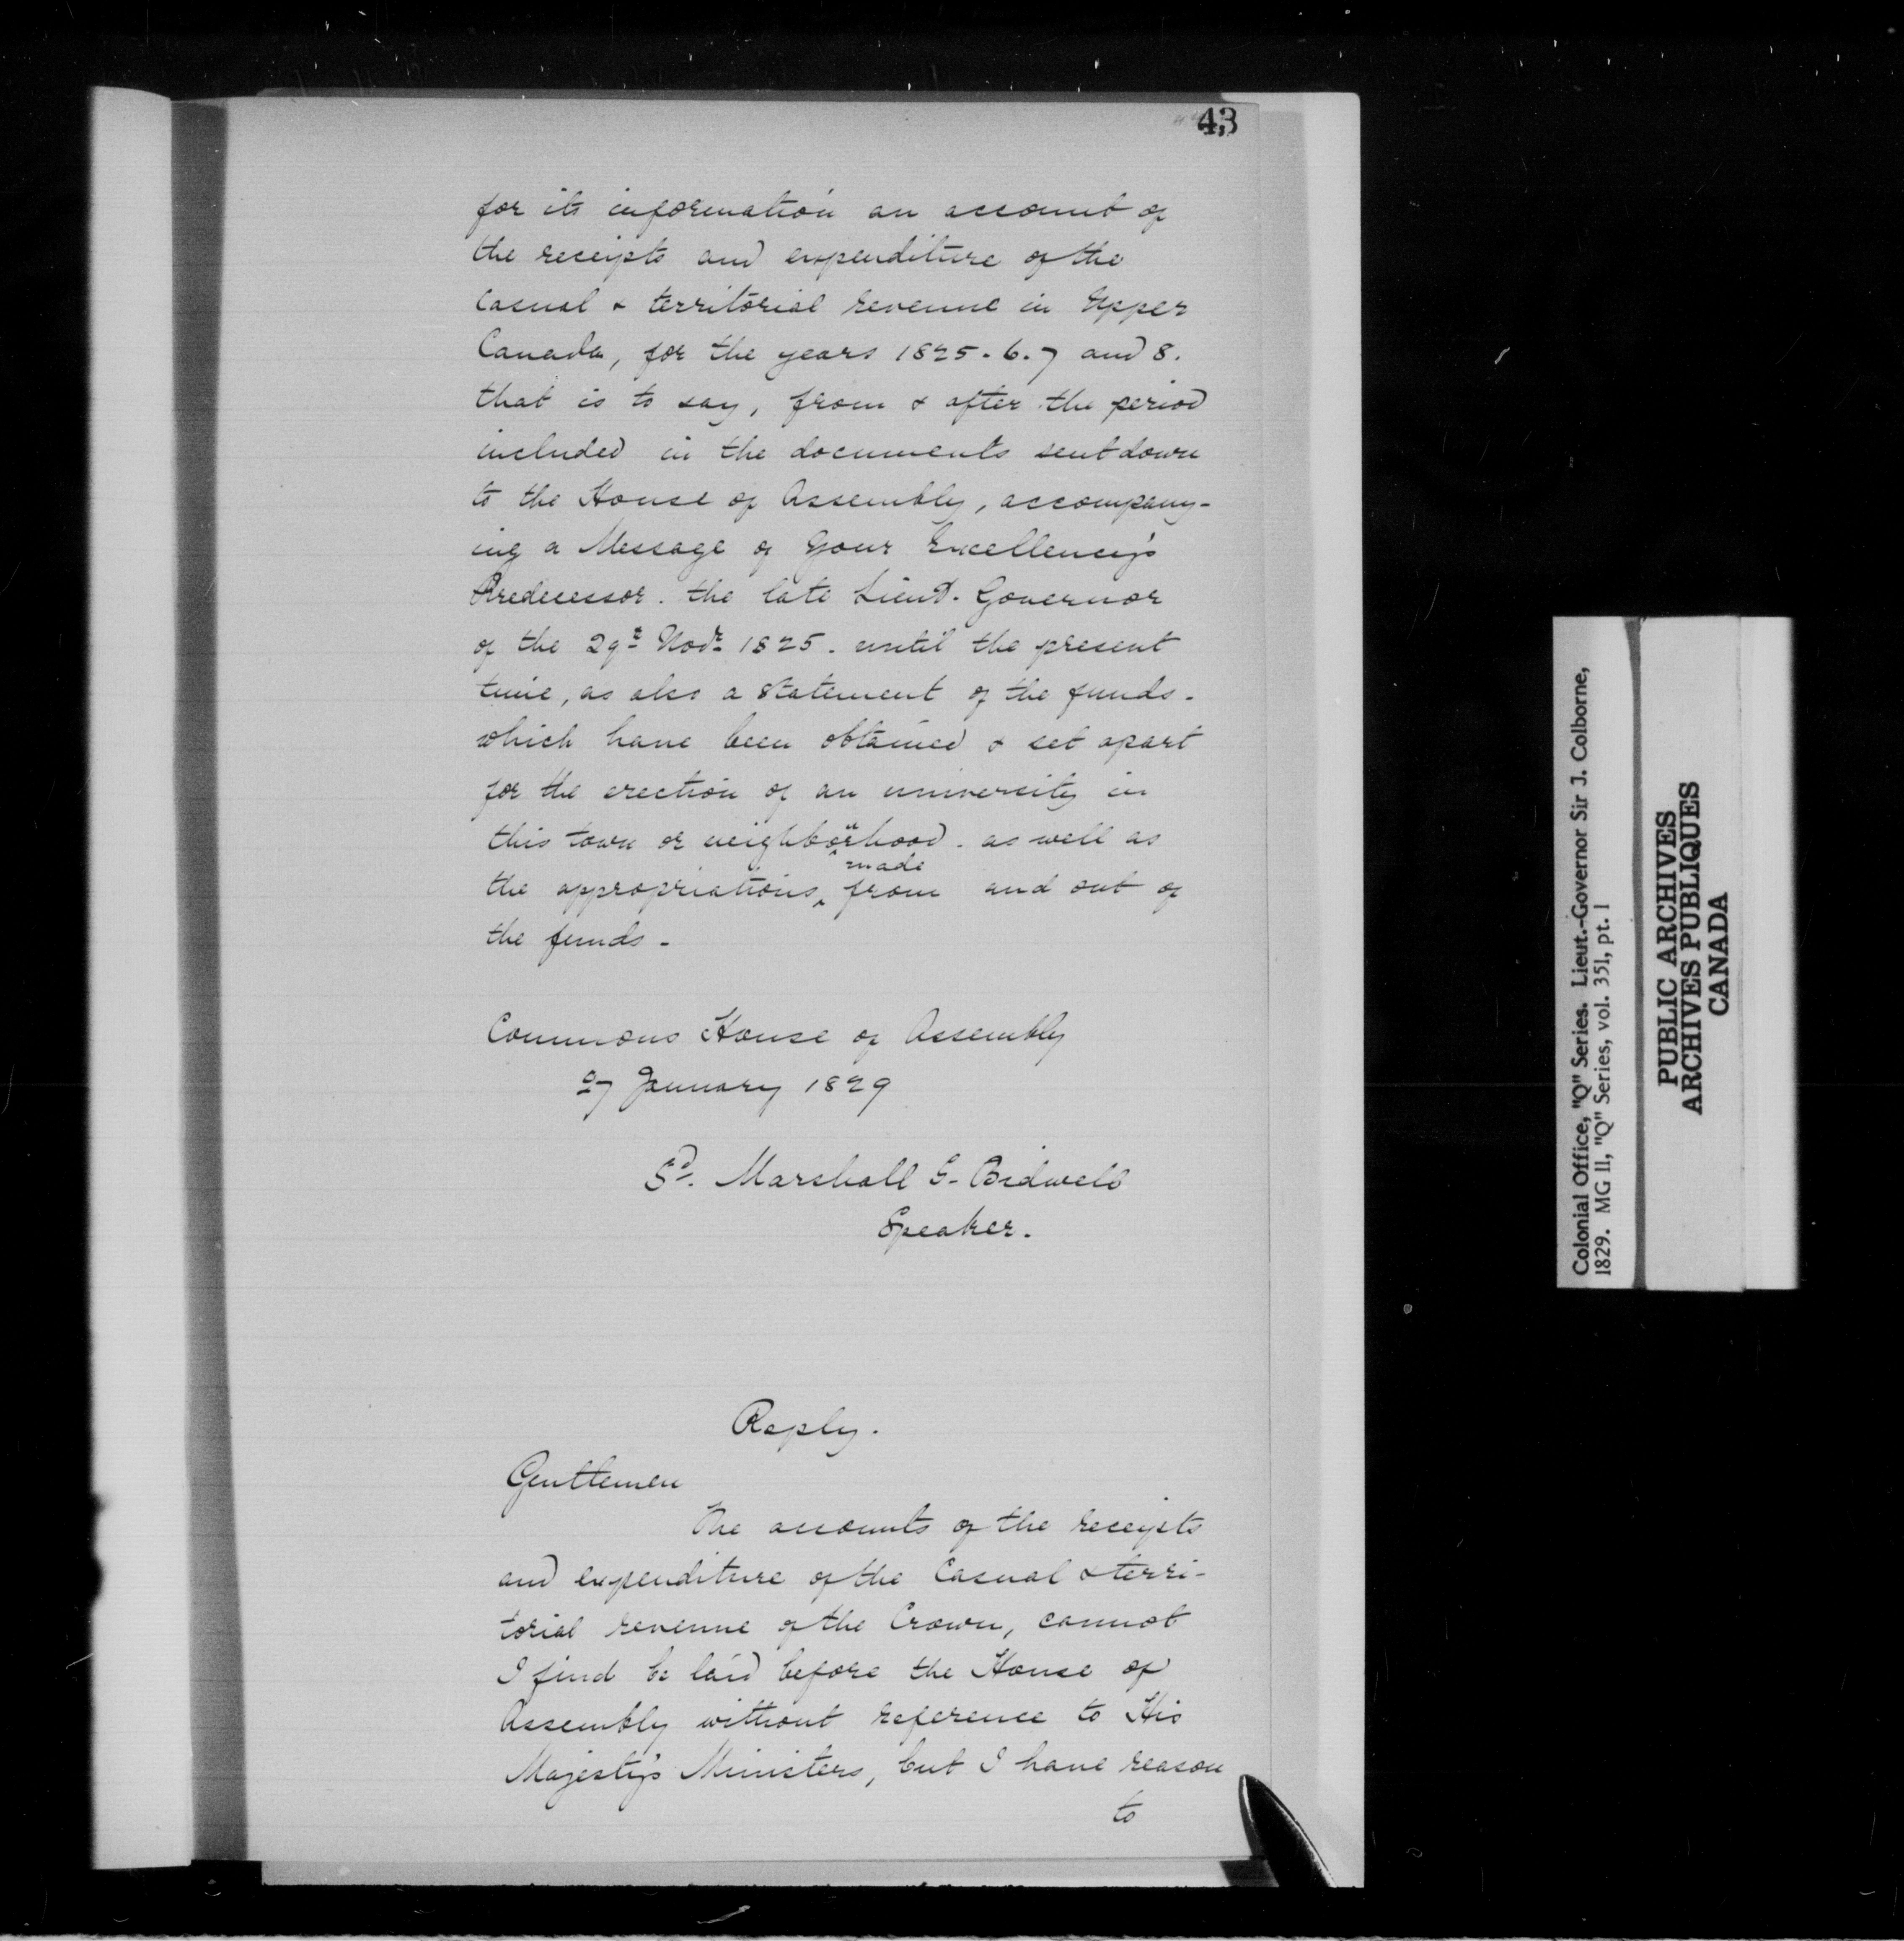 43
for its information an account of
the receipts and expenditure of the
Casual & territorial revenue in Upper
Canada, for the years 1825. 6. 7 and 8.
that is to say, from & after the period
included in the documents sent down
to the House of Assembly, accompany-
ing a Message of Your Excellency's
Predecessor. the late Lieut. Governor
of the 29th Novr 1825. until the present
time, as also a statement of the funds.
which have been obtained & set apart
for the erection of an university in
this town or neighbourhood. as well as
the appropriations made from and out of
the funds.
Commons House of Assembly
27 January 1829
Sd. Marshall S. Bidwell
Speaker.
Reply.
Gentlemen
The accounts of the receipts
and expenditure of the Casual & terri-
torial revenue of the Crown, cannot
I find be laid before the House of
Assembly without reference to His
Majesty's Ministers, but I have reason
to
Colonial Office, "Q" Series. Lieut.-Governor Sir J. Colborne,
1829. MG 11, "Q" Series, vol. 351, pt. 1
PUBLIC ARCHIVES
ARCHIVES PUBLIQUES
CANADA